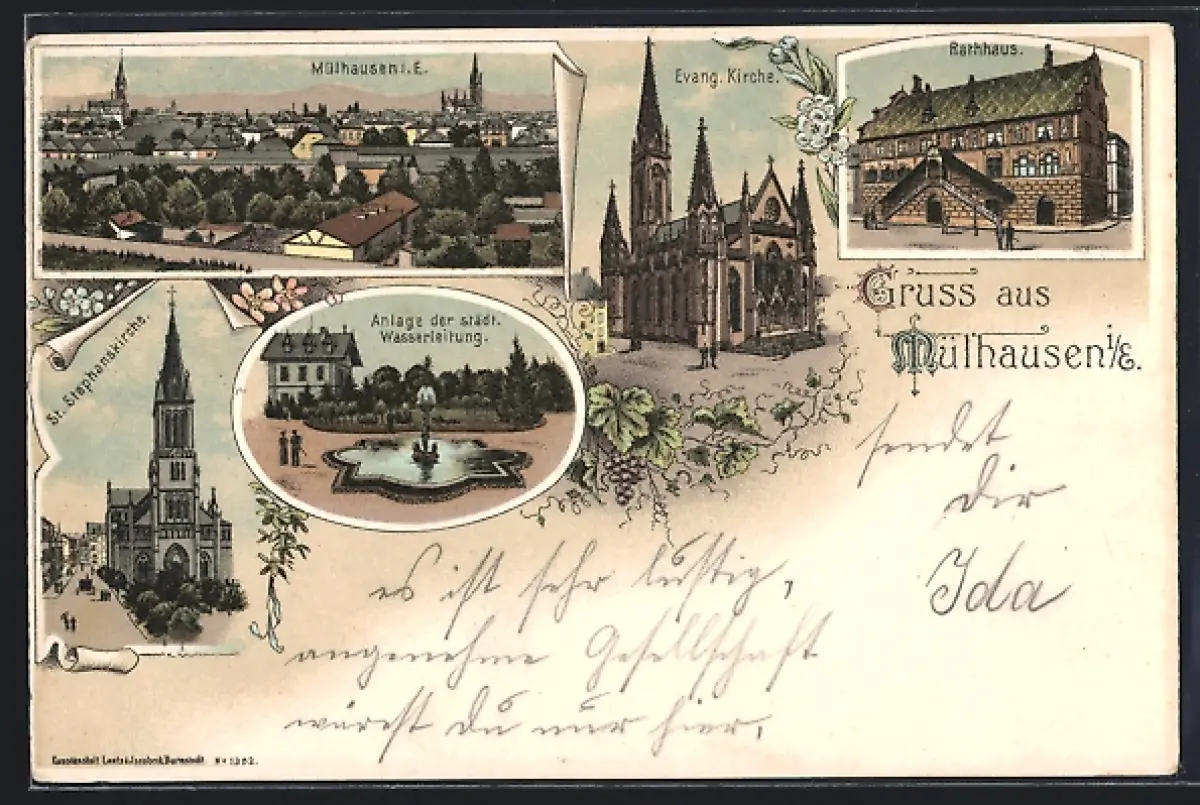 Mülhausen i. E.
Evang. Kirche.
Rathhaus.
St. Stephanskirche.
Anlage der städt.
Wasserleitung.
Gruss aus
Mülhausen i/E.
sendet
Dir
Ida
es ist sehr lustig,
angenehme Gesellschaft
wärest Du nur hier,
Kunstanstalt Lautz & Isenbeck, Darmstadt. No 1302.